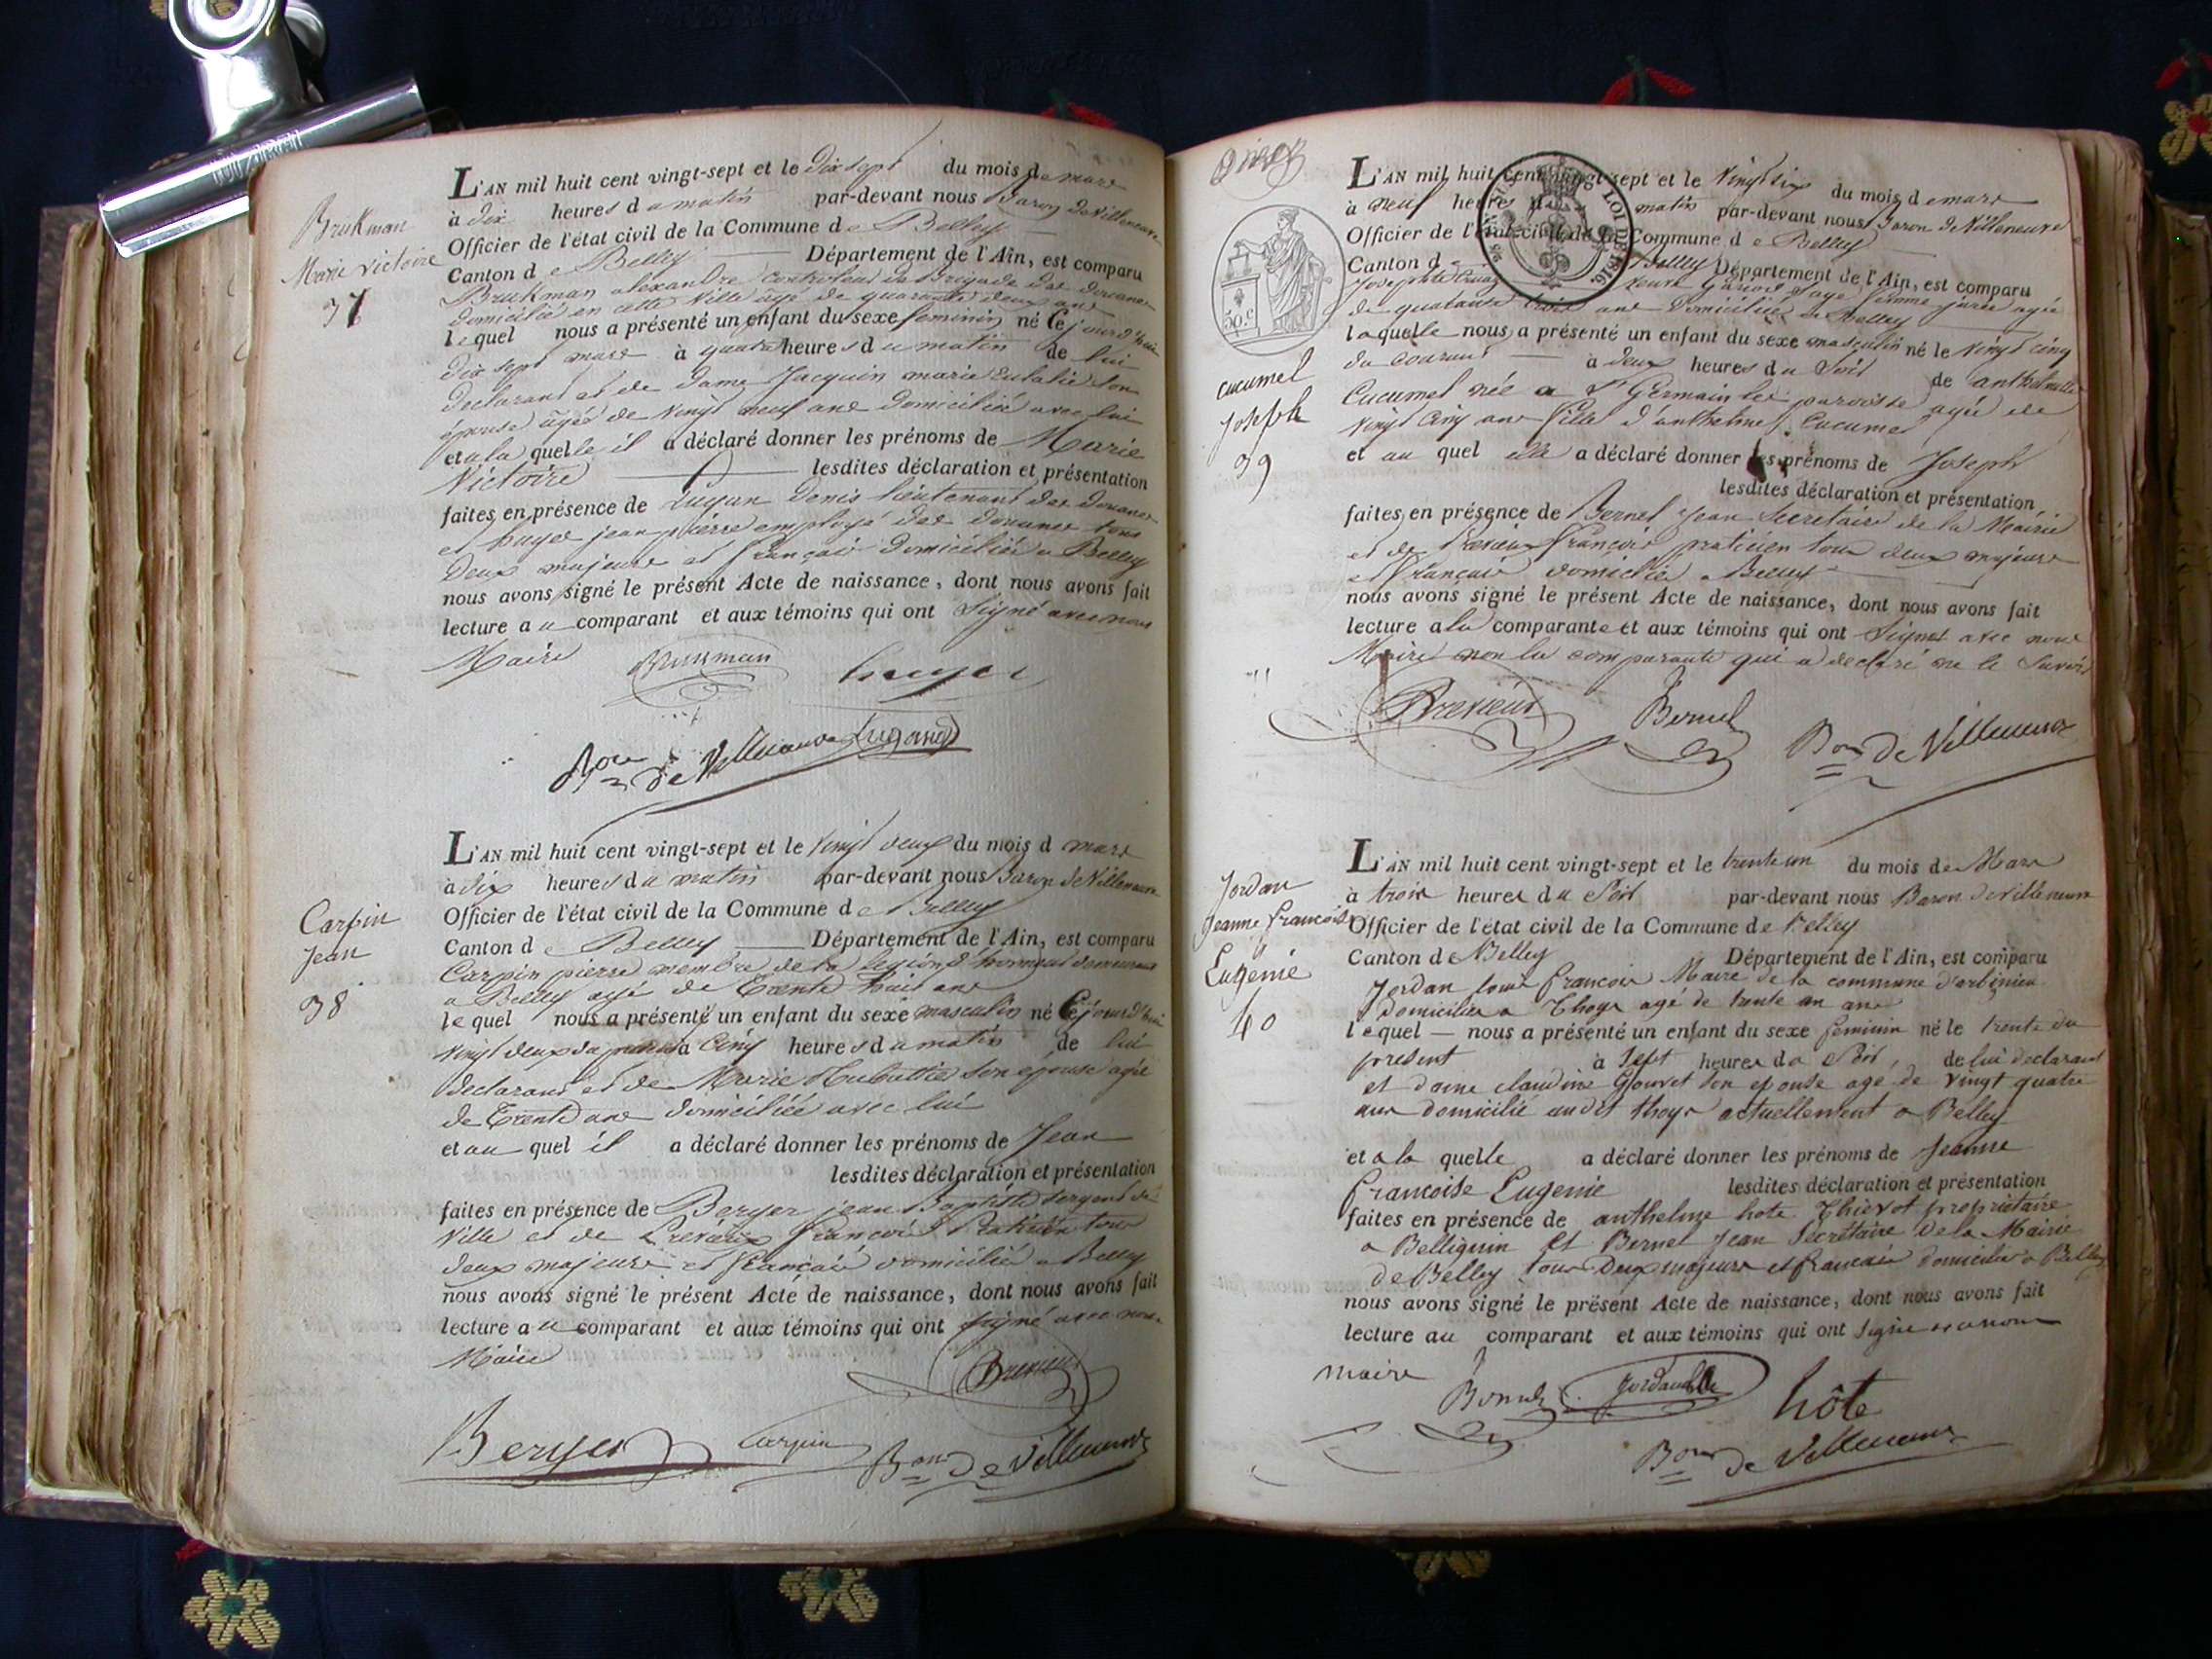 Brukman
Marie Victoire
37
L'AN mil huit cent vingt-sept et le Dix sept du mois de mars
à dix heures du matin par-devant nous Baron de Villeneuve
Officier de l'état civil de la Commune de Belley
Canton de Belley Département de l'Ain, est comparu
Brukman alexandre Controleur de Brigade des douanes
domicilié en cette Ville agé de quarante deux ans
lequel nous a présenté un enfant du sexe feminin né Cejourd'hui
dix sept mars à quatre heures du matin de lui
declarant et de dame Jacquin marie Eulalie son
épouse agée de vingt neuf ans domiciliée avec lui
et a la quelle il a déclaré donner les prénoms de Marie
Victoire lesdites déclaration et présentation
faites en présence de Denis lieutenant des douanes
et huyer jean pierre employé des douanes tous
deux majeurs et français domiciliés a Belley
nous avons signé le présent Acte de naissance, dont nous avons fait
lecture au comparant et aux témoins qui ont Signé avec nous
Maire Brukman huyer
Bon de Villeneuve Lugand
Carpin
Jean
38
L'AN mil huit cent vingt-sept et le vingt deux du mois d mars
à dix heures du matin par-devant nous Baron de Villeneuve
Officier de l'état civil de la Commune de Belley
Canton de Belley Département de l'Ain, est comparu
Carpin pierre membre de la Legion d'honneur demeurant
a Belley agé de Trente huit ans
lequel nous a présenté un enfant du sexe masculin né Cejourd'hui
vingt deux du présent à Cinq heures du matin de lui
declarant et de Marie son épouse agée
de Trente ans domiciliée avec lui
et au quel il a déclaré donner les prénoms de Jean
lesdites déclaration et présentation
faites en présence de Berger jean Baptiste sergent de
Ville et de Prenieux françois Praticien tous
deux majeurs et français domiciliés a Belley
nous avons signé le présent Acte de naissance, dont nous avons fait
lecture au comparant et aux témoins qui ont signé avec nous
Maire Prenieux
Berger Carpin Bon de Villeneuve
50 c.
LOI DE 1816.
Cucumel
Joseph
39
L'AN mil huit cent vingt-sept et le Vingt six du mois de mars
à neuf heures du matin par-devant nous Baron de Villeneuve
Officier de l'état civil de la Commune de Belley
Canton de Belley Département de l'Ain, est comparu
Josephte veuve Sage femme jurée agée
de quarante trois ans domiciliée a Belley
laquelle nous a présenté un enfant du sexe masculin né le vingt cinq
du courant à deux heures du Soir de anthelmette
Cucumel née a St Germain les paroisse agée de
vingt cinq ans fille d'anthelme Cucumel
et au quel elle a déclaré donner les prénoms de Joseph
lesdites déclaration et présentation
faites en présence de Bernel Jean Secretaire de la Mairie
et de Prenieux françois praticien tous deux majeurs
et français domiciliés a Belley
nous avons signé le présent Acte de naissance, dont nous avons fait
lecture a la comparante et aux témoins qui ont Signé avec nous
Maire non la comparante qui a declaré ne le Savoir
Prenieux Bernel Bon de Villeneuve
Jordan
Jeanne francoise
Eugenie
40
L'AN mil huit cent vingt-sept et le trente un du mois de Mars
à trois heures du Soir par-devant nous Baron de Villeneuve
Officier de l'état civil de la Commune de Belley
Canton de Belley Département de l'Ain, est comparu
Jordan louis francois Maire de la commune d'arbignieu
domicilié a Thoys agé de trente un ans
lequel nous a présenté un enfant du sexe feminin né le trente du
present à Sept heures du Soir, de lui declarant
et dame claudine Gouvet Son epouse agé de vingt quatre
ans domicilié audit thoys actuellement a Belley
et a la quelle a déclaré donner les prénoms de Jeanne
francoise Eugenie lesdites déclaration et présentation
faites en présence de anthelme hote propriétaire
a Bellignin et Bernel Jean Secrétaire de la Mairie
de Belley tous deux majeurs et francais domiciliés a Belley
nous avons signé le présent Acte de naissance, dont nous avons fait
lecture au comparant et aux témoins qui ont signé avec nous
maire Bernel Jordan hôte
Bon de Villeneuve